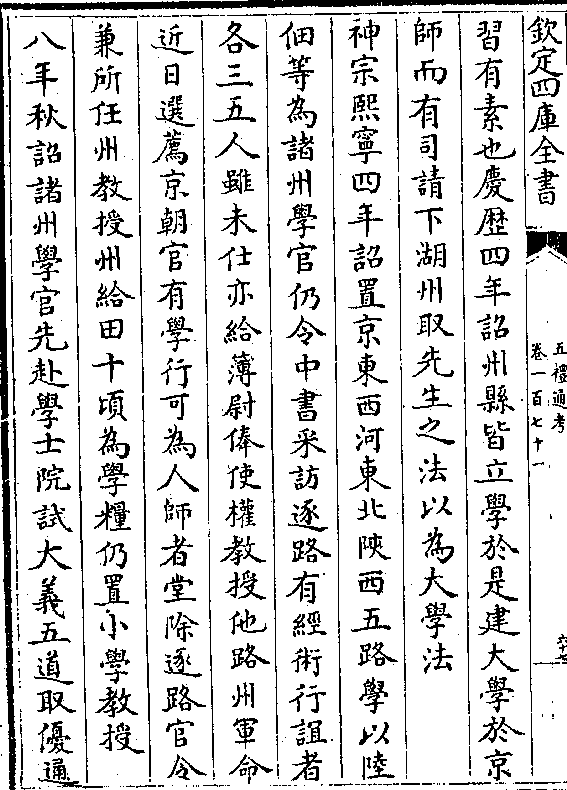 欽定四庫全書
五禮通考
卷一百七十一
習有素也慶歴四年詔州縣皆立學於是建大學於京
師而有司請下湖州取先生之法以為大學法
神宗熙寧四年詔置京東西河東北陜西五路學以陸
佃等為諸州學官仍令中書采訪逐路有經術行誼者
各三五人雖未仕亦給薄尉俸使權教授他路州軍命
近日選薦京朝官有學行可為人師者堂除逐路官令
兼所任州教授州給田十頃為學糧仍置小學教授
八年秋詔諸州學官先赴學士院試大義五道取優通